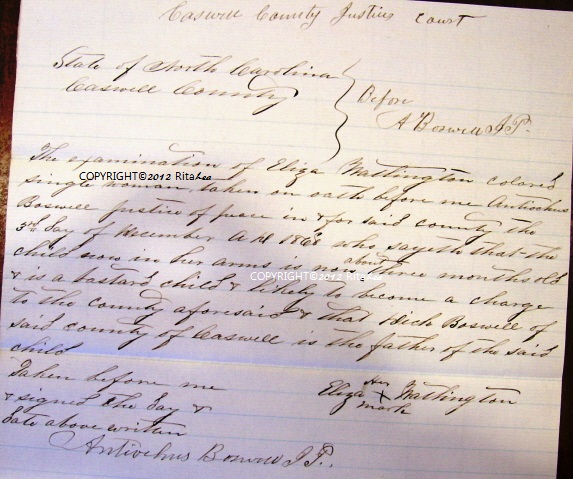 Caswell County Justice Court
State of North Carolina
Caswell County
Before
A Boswell J.P.
The examination of Eliza Wattington colored
COPYRIGHT©2012 RitaLee
single woman taken on oath before me Antiochus
Boswell justice of peace in & for said county the
3rd day of December A D who sayeth that the
child now in her arms is about three months old
COPYRIGHT©2012 RitaLee
& is a bastard child & likely to become a charge
to the county aforesaid & that Boswell of
said county of Caswell is the father of the said
child
Taken before me
& signed the day &
date above written
Antiochus Boswell J P.
Eliza her X mark Wattington